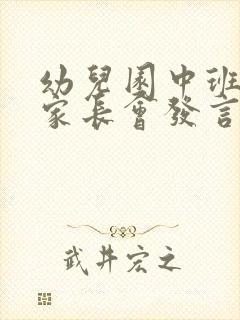 幼兒園中班
家長會發言
武井宏之